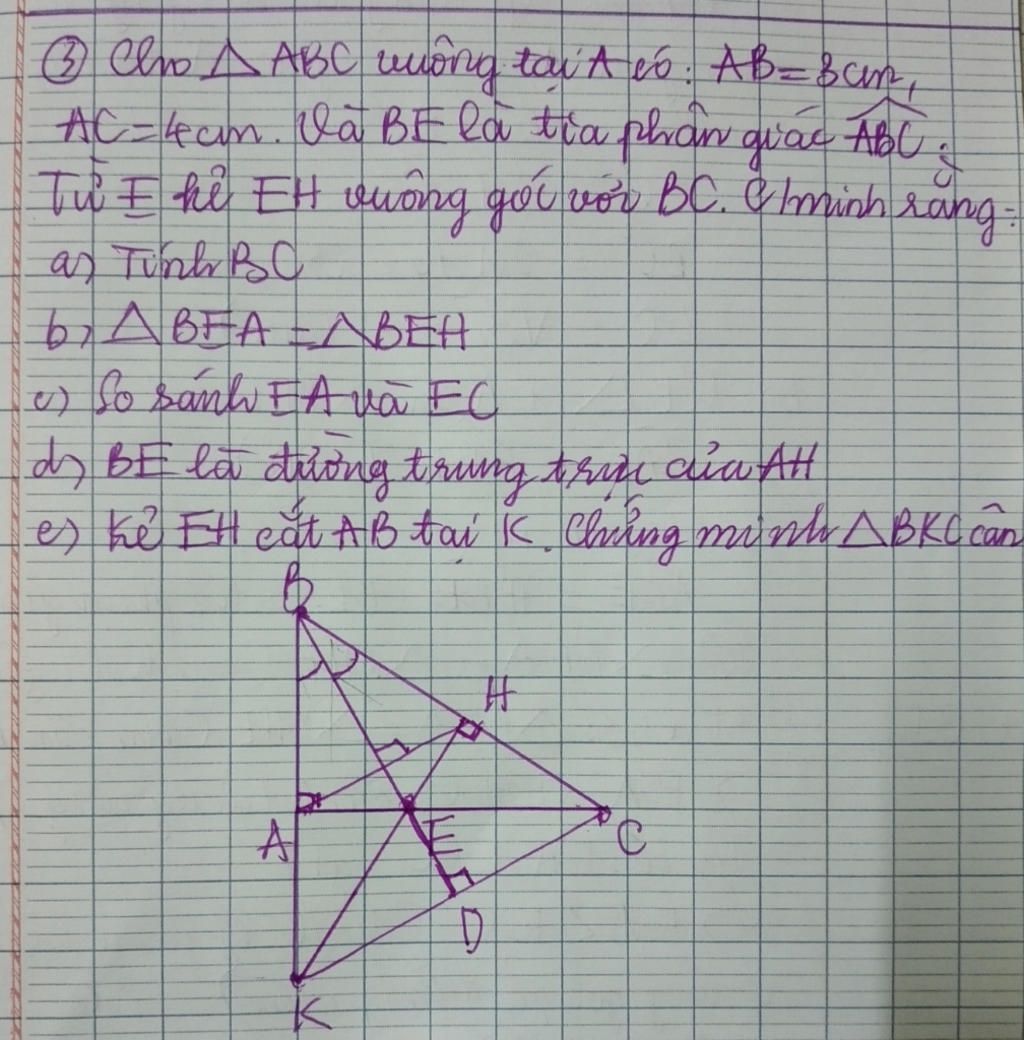 ③ Cho △ ABC vuông tại A có: AB = 3cm,
AC = 4cm. Và BE là tia phân giác ABC;
Từ E kẻ EH vuông góc với BC. C/minh rằng:
a) Tính BC
b) △ BEA = △BEH
c) So sánh EA và EC
d) BE là đường trung trực của AH
e) Kẻ EH cắt AB tại K. Chứng minh △BKC cân
B
H
A
E
C
D
K